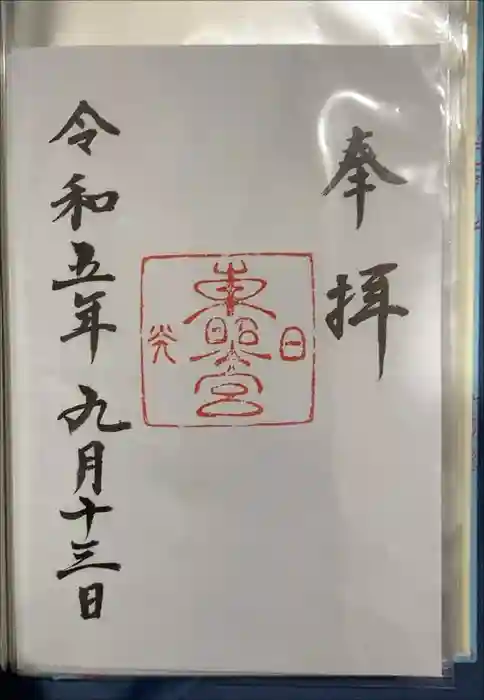 奉拝
日光
東照宮
令和五年九月十三日